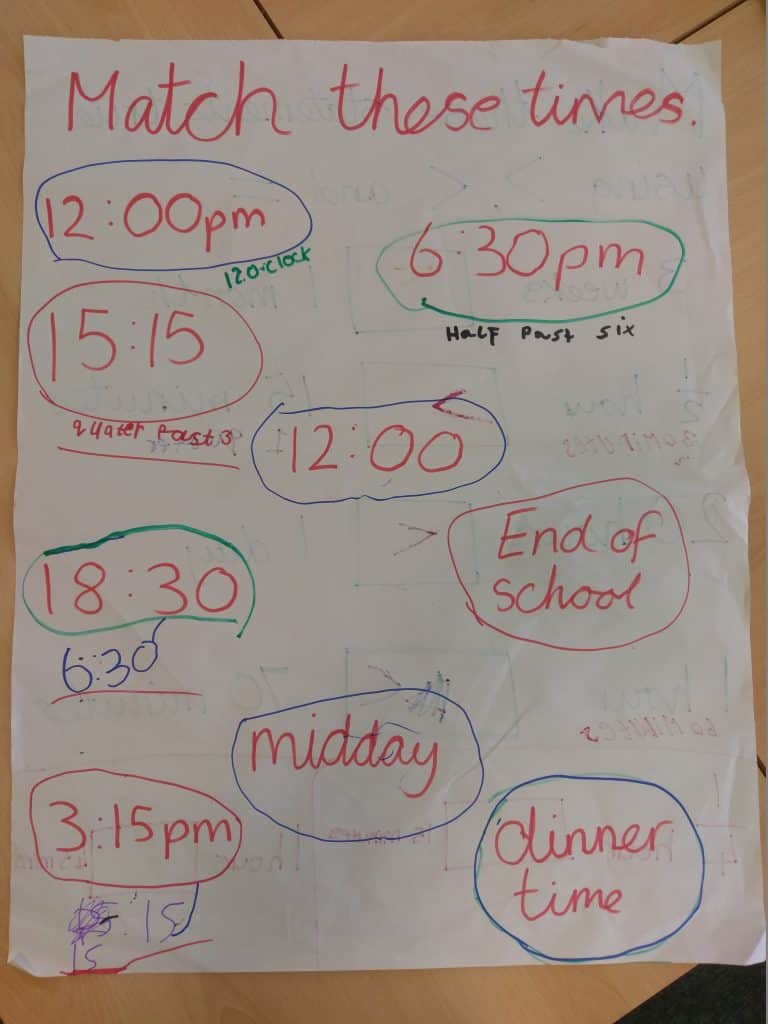 Match these times.
12:00pm
12.0.clock
6:30pm
Half Past six
15:15
quater Past 3
12:00
End of
school
18:30
6:30
midday
3:15pm
:15
15
dinner
time